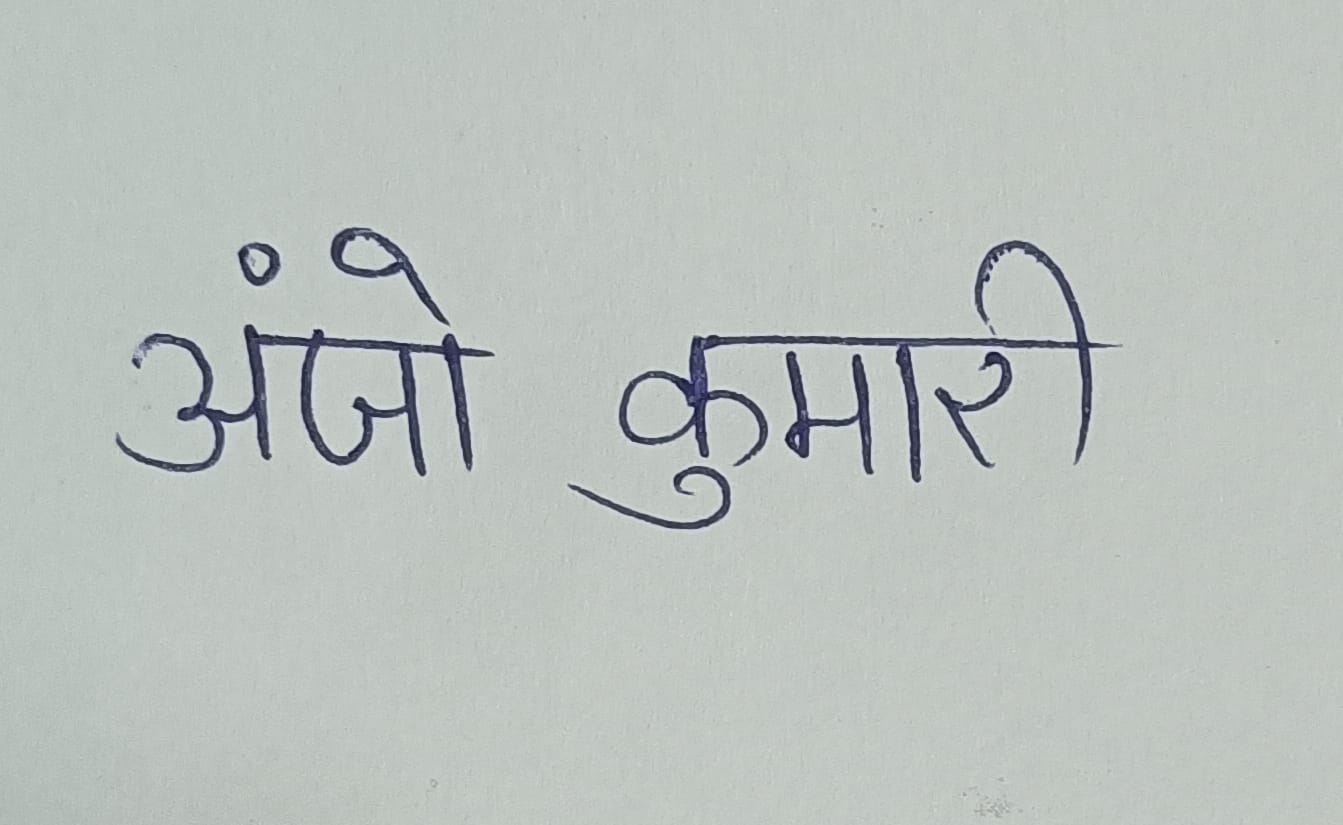 अंजो कुमारी